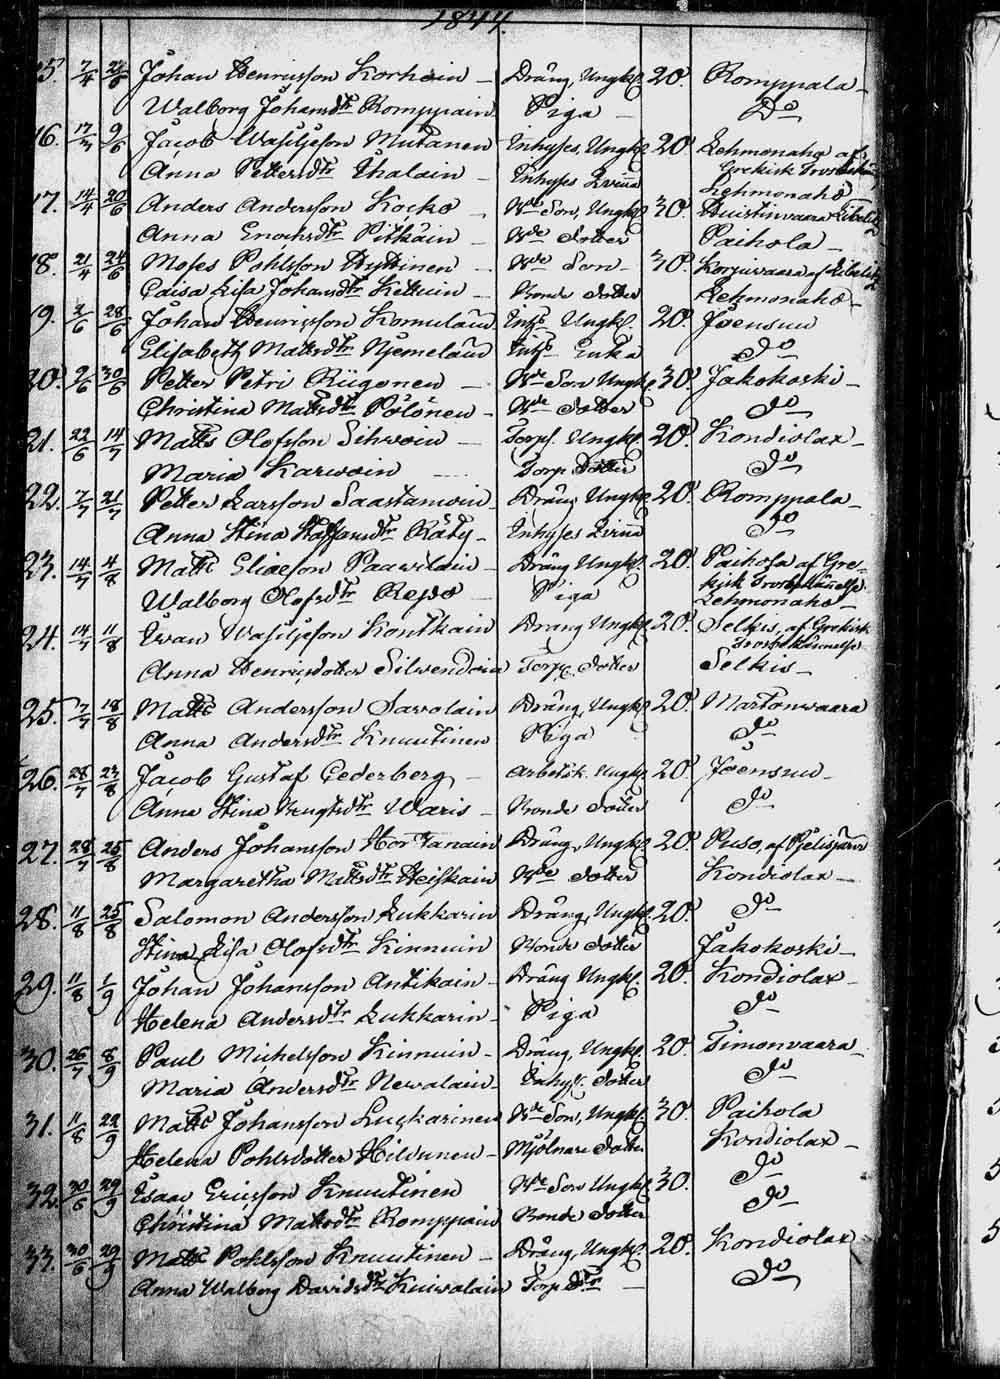 1844.
15. 7/4 2/6 Johan Henricsson Korhoin — Dräng, Ungk. 20. Romppala —
Walborg Johansdr Romppain Piga — Do
16. 17/3 9/6 Jacob Wasiljeson Mutanen Inhyses, Ungk. 20. Lehmonaho af
Anna Pettersdr Ihalain — Inhyses Qvinna Grekisk Trosbekän
17. 14/4 20/6 Anders Andersson Kocko — Bde Son, Ungk. 30. Lehmonaho Huistinvaara Libelitz
Anna Enochsdr Pitkäin — Bde Dotter Paihola —
18. 21/4 24/6 Moses Pohlsson Hyttinen — Bde Son — 30. Korpivaara af Libelitz
Caisa Lisa Johansdr Kettuin — Bonde Dotter Lehmonaho —
19. 2/6 28/6 Johan Henricsson Komulain Inhs Ungk. 20. Joensuu
Elisabeth Mattsdr Njemeläin Inhs Enka Do
20. 2/6 30/6 Petter Petri Riigonen — Bde Son Ungk. 30. Jakokoski —
Christina Mattsdr Pölönen — Bde Dotter Do
21. 22/6 14/7 Matts Olofsson Sihvoin — Torp. Ungk. 20. Kondiolax —
Maria Karvoin Torp Dotter Do
22. 7/7 21/7 Petter Larsson Saastamoin Dräng Ungk. 20. Romppala —
Anna Stina Staffansdr Räty — Inhyses Qvinna Do
23. 14/7 4/8 Matts Eliaeson Paavilain — Dräng Ungk. 20. Paihola af Gre-
Walborg Olofsdr Repo — Piga kisk Trosbekännelse
Lehmonaho —
24. 14/7 11/8 Iwan Wasiljeson Kontkain Dräng Ungk. 20. Selkis, af Grekisk
Trosbekännelse
Anna Henricsdotter Silvendoin Torp. Dotter Selkis —
25. 7/7 18/8 Matts Andersson Savolain Dräng, Ungk. 20. Martonvaara
Anna Andersdr Knuutinen Piga Do
26. 28/7 23/8 Jacob Gustaf Cederberg — Arbetsk. Ungk. 20. Joensuu —
Anna Stina Bengtsdr Waris — Bonde Dotter Do
27. 28/7 25/8 Anders Johansson Hortanain Dräng, Ungk. 20. Puso, af Pjelisjärvi
Margaretha Mattsdr Heiskain Bde Dotter Kondiolax —
28. 11/8 25/8 Salomon Andersson Lukkarin Dräng, Ungk. 20. Do
Stina Lisa Olofsdr Kinnuin Bonde Dotter Jakokoski —
29. 11/8 1/9 Johan Johansson Antikain — Dräng Ungk. 20. Kondiolax —
Helena Andersdr Lukkarin — Piga Do
30. 26/7 8/9 Paul Michelsson Kinnuin — Dräng, Ungk. 20. Timonvaara —
Maria Andersdr Nevalain — Inhys. Dotter Do
31. 11/8 22/9 Matts Johansson Luckarinen Bde Son, Ungk. 30. Paihola
Helena Pohlsdotter Hilvunen — Mjölnare Dotter Kondiolax —
32. 30/6 29/9 Isaac Ericsson Knuutinen Bde Son Ungk. 30. Do
Christina Mattsdr Romppain Bonde Dotter Do
33. 30/6 29/9 Matts Pohlsson Knuutinen — Dräng, Ungk. 20. Kondiolax
Anna Walborg Davidsdr Kuivalain Torp Dtr — Do